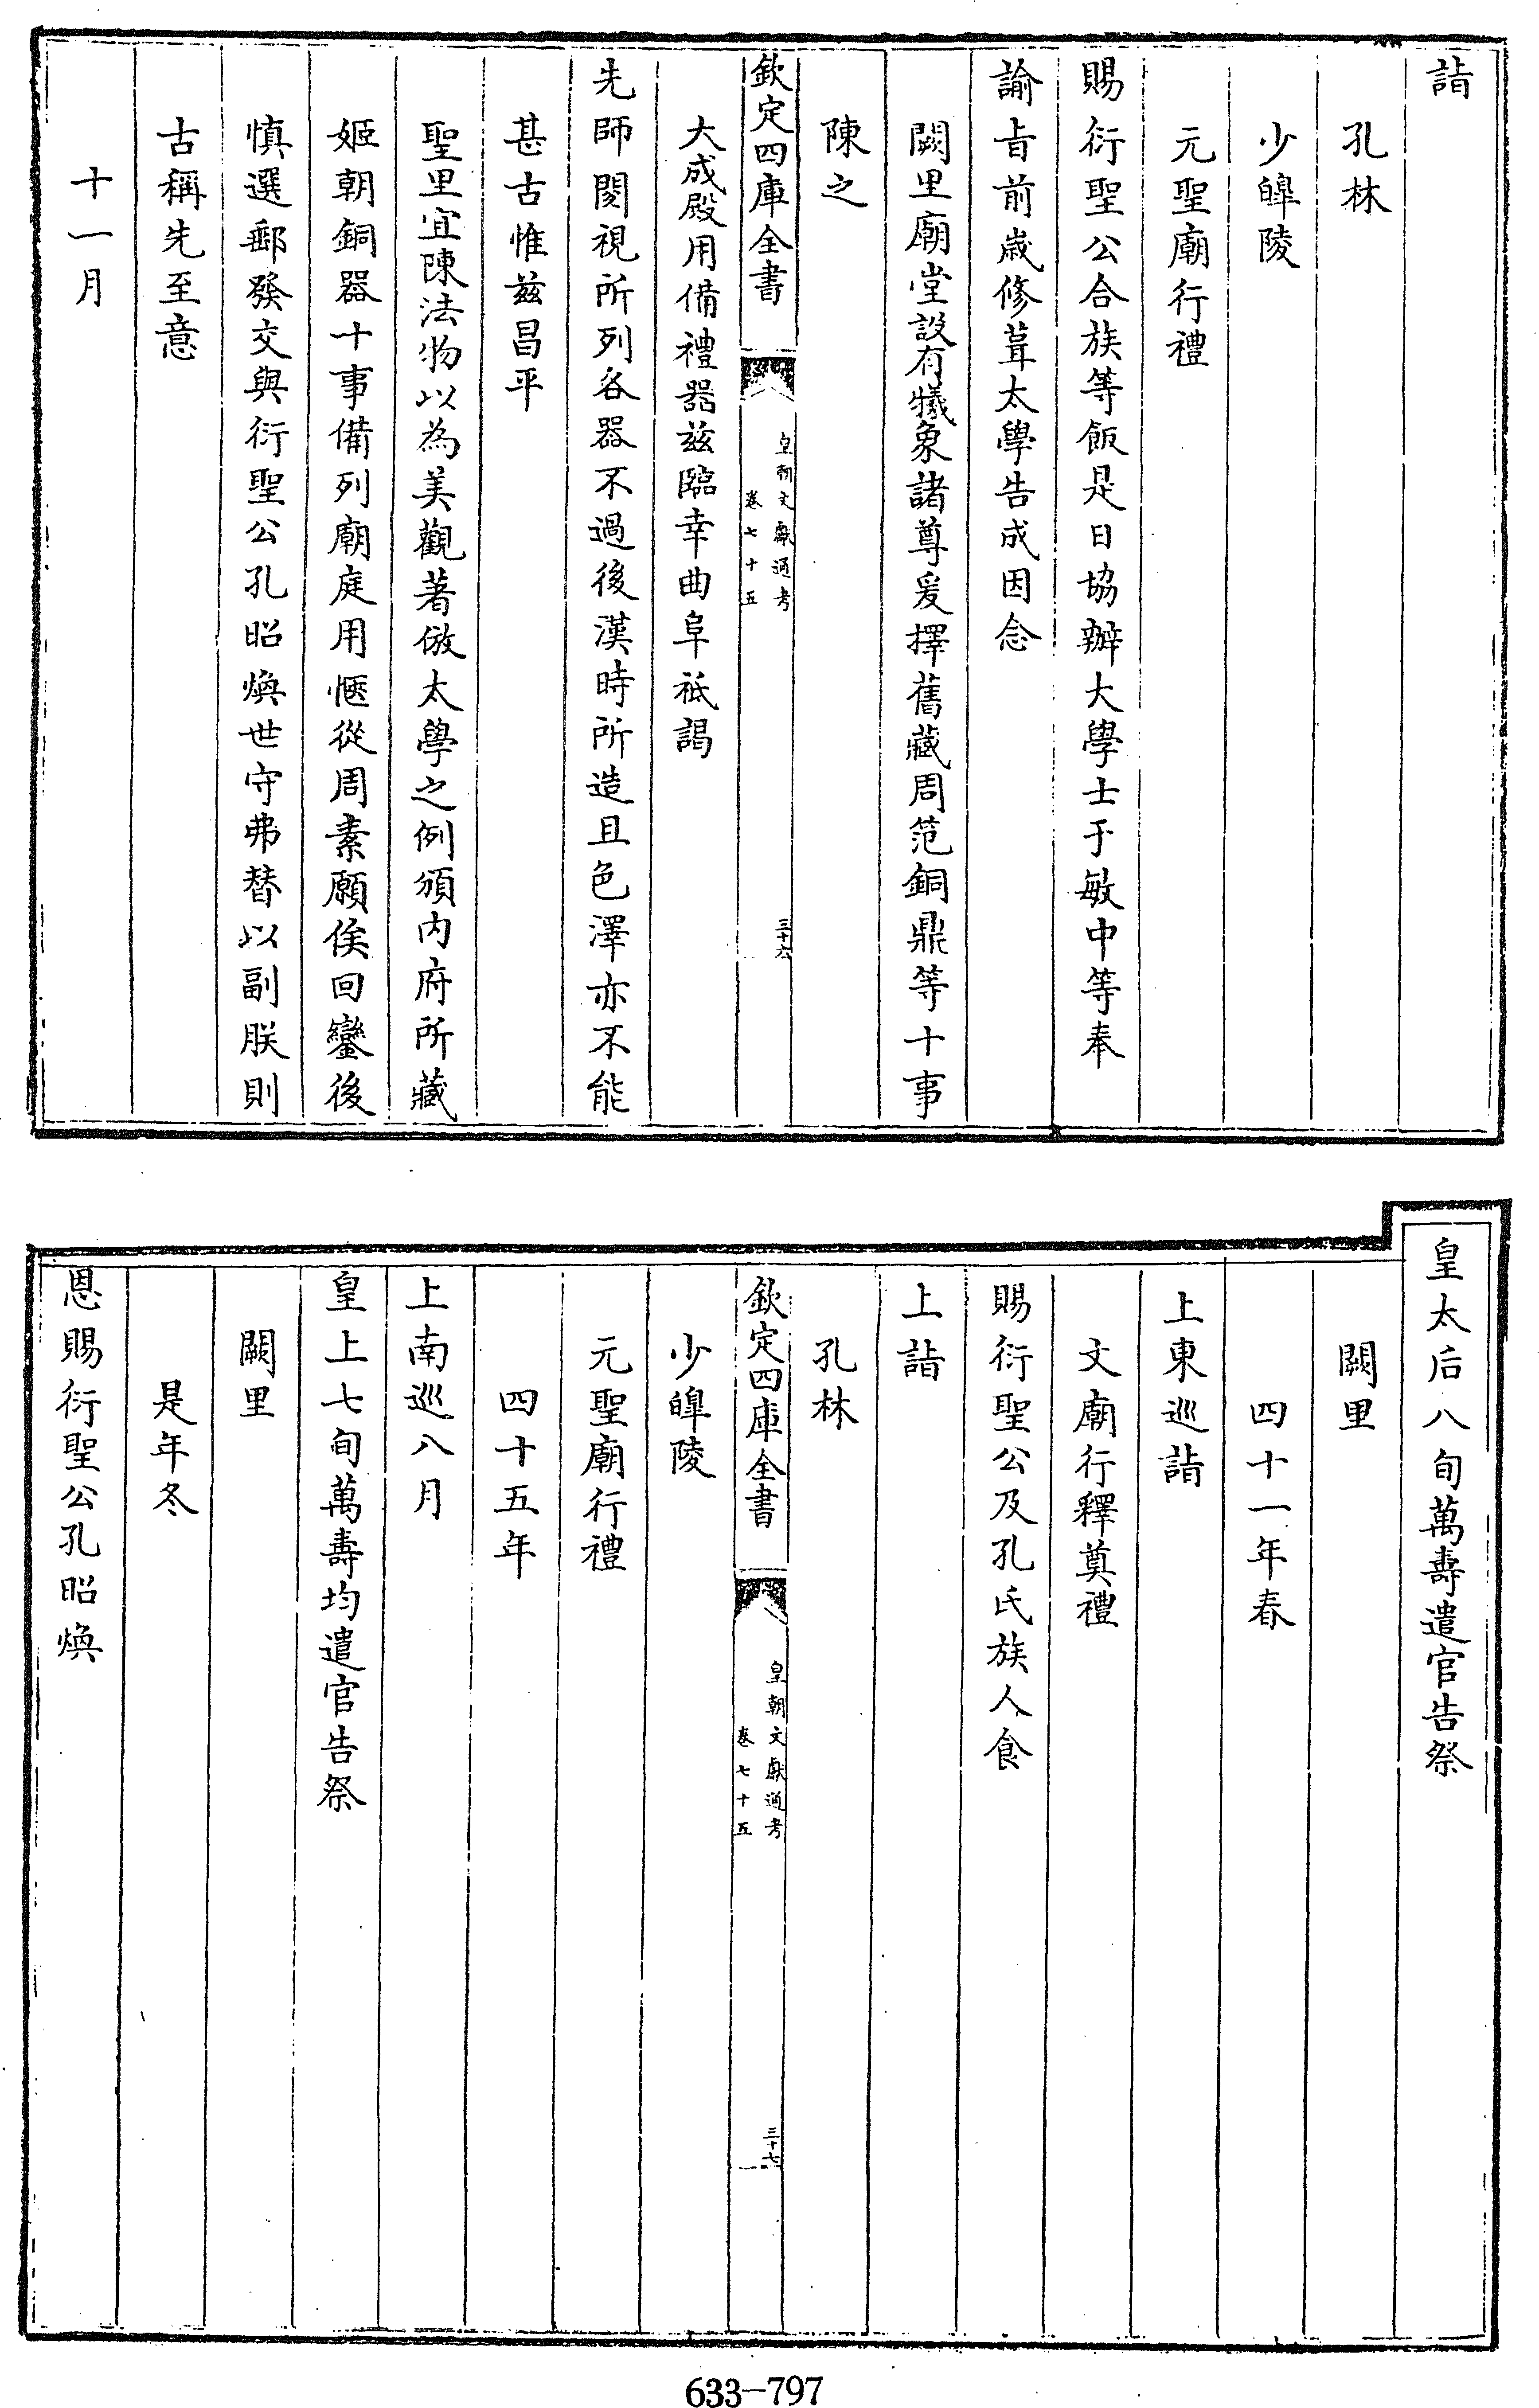 詣
孔林
少皥陵
元聖廟行禮
賜衍聖公合族等飯是日協辦大學士于敏中等奉
諭㫖前嵗修葺太學告成因念
闕里廟堂設有犧象諸尊爰擇舊藏周范銅鼎等十事
陳之
欽定四庫全書
皇朝文獻通考
卷七十五
三十六
大成殿用備禮器兹臨幸曲阜祗謁
先師閟視所列各器不過後漢時所造且色澤亦不能
甚古惟兹昌平
聖里宜陳法物以為美觀著倣太學之例頒内府所藏
姬朝銅器十事備列廟庭用愜從周素願俟回鑾後
慎選郵發交與衍聖公孔昭煥世守弗替以副朕則
古稱先至意
十一月
皇太后八旬萬壽遣官告祭
闕里
四十一年春
上東巡詣
文廟行釋奠禮
賜衍聖公及孔氏族人食
上詣
孔林
欽定四庫全書
皇朝文獻通考
卷七十五
三十七
少皥陵
元聖廟行禮
四十五年
上南巡八月
皇上七旬萬壽均遣官告祭
闕里
是年冬
恩賜衍聖公孔昭煥
633-797